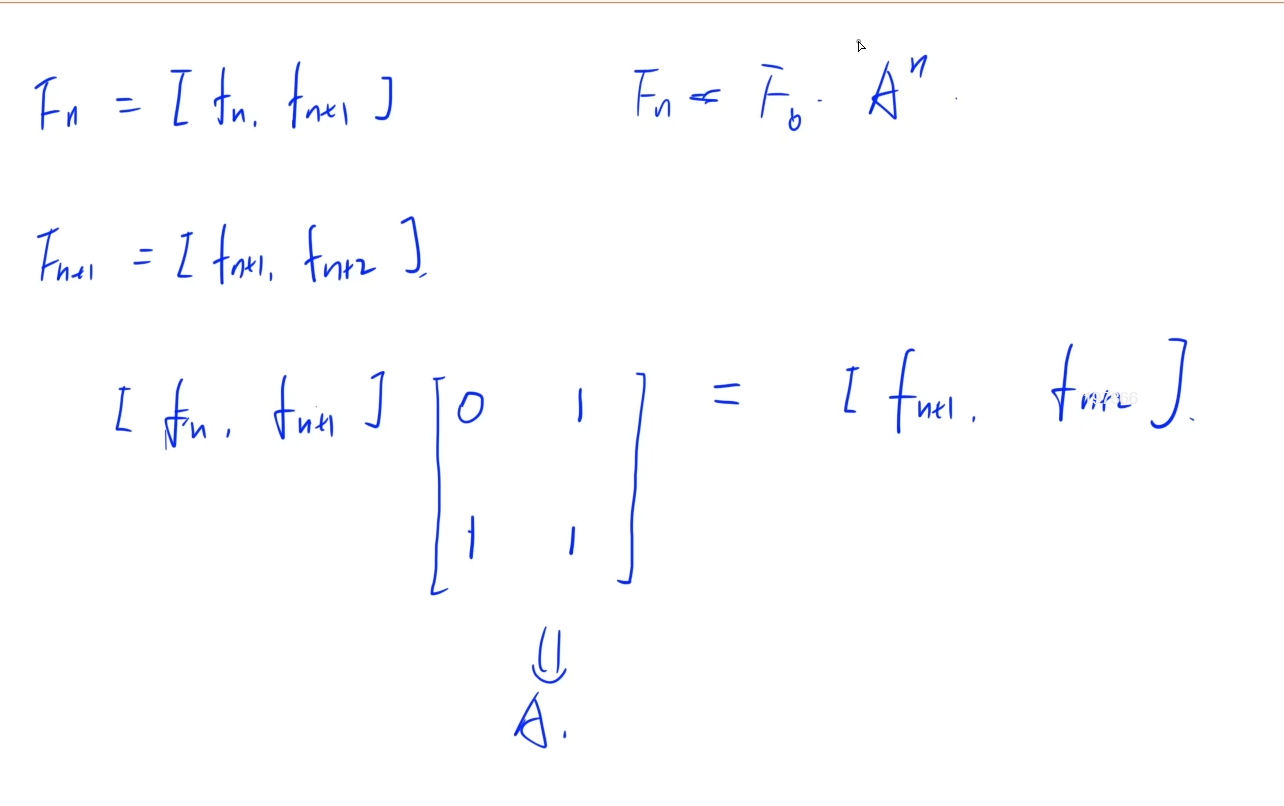 Fₙ = [fₙ, fₙ₊₁] Fₙ = F₀ · Aⁿ
Fₙ₊₁ = [fₙ₊₁, fₙ₊₂].
[fₙ, fₙ₊₁] [0 1 = [fₙ₊₁, fₙ₊₂].
1 1]
⇓
A.